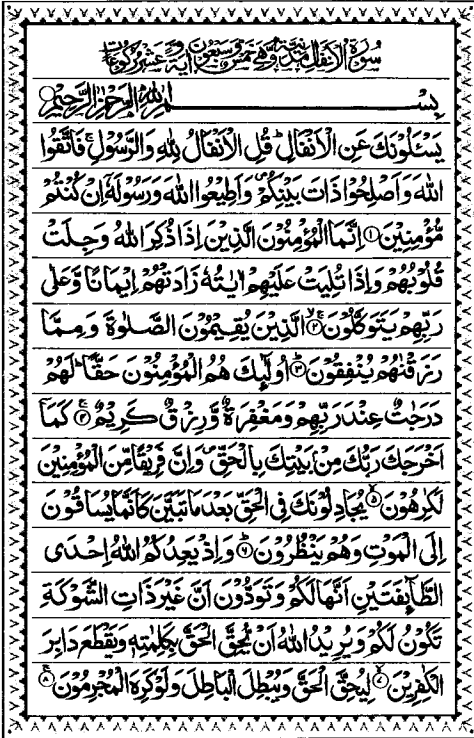 سُوْرَةُ الْاَنْفَالِ مَدَنِيَّةٌ وَّهِيَ خَمْسٌ وَّسَبْعُوْنَ اٰيَةً وَّعَشْرُ رُكُوْعَاتٍ
بِسْــــــــــمِ اللّٰهِ الرَّحْمٰنِ الرَّحِيْمِ
يَسْـَٔلُوْنَكَ عَنِ الْاَنْفَالِ ؕ قُلِ الْاَنْفَالُ لِلّٰهِ وَالرَّسُوْلِ ۚ فَاتَّقُوا
اللّٰهَ وَاَصْلِحُوْا ذَاتَ بَيْنِكُمْ ۪ وَاَطِيْعُوا اللّٰهَ وَرَسُوْلَهٗۤ اِنْ كُنْتُمْ
مُّؤْمِنِيْنَ ﴿۱﴾ اِنَّمَا الْمُؤْمِنُوْنَ الَّذِيْنَ اِذَا ذُكِرَ اللّٰهُ وَجِلَتْ
قُلُوْبُهُمْ وَاِذَا تُلِيَتْ عَلَيْهِمْ اٰيٰتُهٗ زَادَتْهُمْ اِيْمَانًا وَّعَلٰى
رَبِّهِمْ يَتَوَكَّلُوْنَ ﴿۲﴾ الَّذِيْنَ يُقِيْمُوْنَ الصَّلٰوةَ وَمِمَّا
رَزَقْنٰهُمْ يُنْفِقُوْنَ ﴿۳﴾ اُولٰٓئِكَ هُمُ الْمُؤْمِنُوْنَ حَقًّا ؕ لَهُمْ
دَرَجٰتٌ عِنْدَ رَبِّهِمْ وَمَغْفِرَةٌ وَّرِزْقٌ كَرِيْمٌ ﴿۴﴾ كَمَاۤ
اَخْرَجَكَ رَبُّكَ مِنْۢ بَيْتِكَ بِالْحَقِّ ۪ وَاِنَّ فَرِيْقًا مِّنَ الْمُؤْمِنِيْنَ
لَكٰرِهُوْنَ ﴿۵﴾ يُجَادِلُوْنَكَ فِى الْحَقِّ بَعْدَ مَا تَبَيَّنَ كَاَنَّمَا يُسَاقُوْنَ
اِلَى الْمَوْتِ وَهُمْ يَنْظُرُوْنَ ﴿۶﴾ وَاِذْ يَعِدُكُمُ اللّٰهُ اِحْدَى
الطَّآئِفَتَيْنِ اَنَّهَا لَكُمْ وَتَوَدُّوْنَ اَنَّ غَيْرَ ذَاتِ الشَّوْكَةِ
تَكُوْنُ لَكُمْ وَيُرِيْدُ اللّٰهُ اَنْ يُّحِقَّ الْحَقَّ بِكَلِمٰتِهٖ وَيَقْطَعَ دَابِرَ
الْكٰفِرِيْنَ ﴿۷﴾ لِيُحِقَّ الْحَقَّ وَيُبْطِلَ الْبَاطِلَ وَلَوْ كَرِهَ الْمُجْرِمُوْنَ ﴿۸﴾